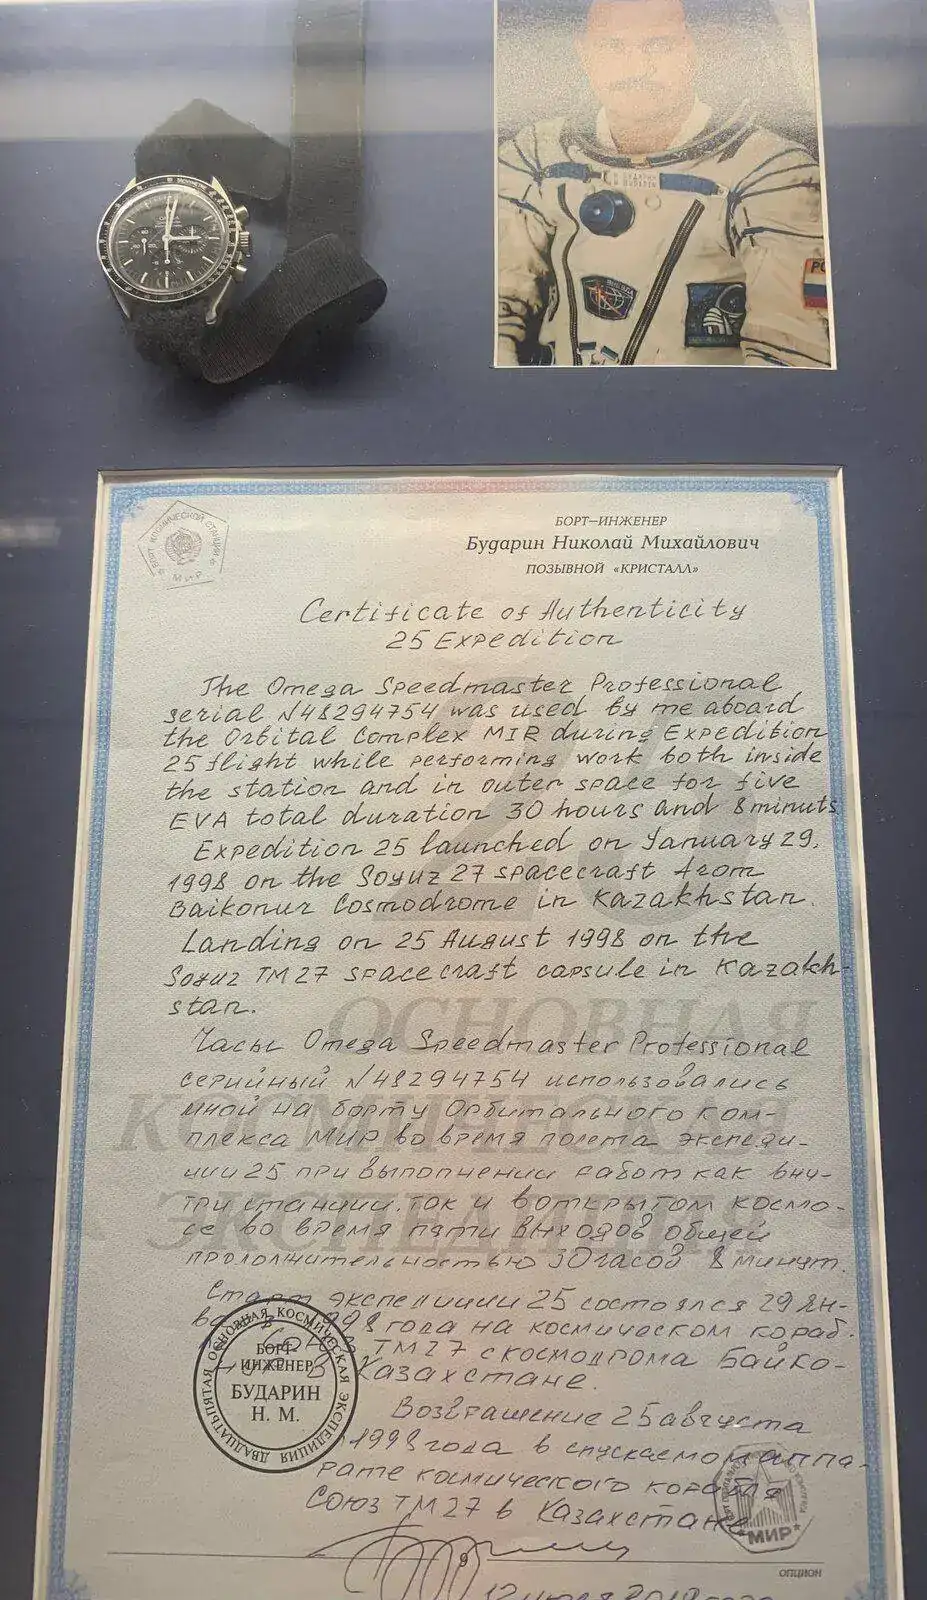 TACHYMETRE
OMEGA
Н БУДАРИН
N BUDARIN
РО
НА БОРТУ КОСМИЧЕСКОЙ СТАНЦИИ
МИР
БОРТ–ИНЖЕНЕР
Бударин Николай Михайлович
ПОЗЫВНОЙ «КРИСТАЛЛ»
Certificate of Authenticity
25 Expedition
The Omega Speedmaster Professional
serial N48294754 was used by me aboard
the Orbital Complex MIR during Expedition
25 flight while performing work both inside
the station and in outer space for five
EVA total duration 30 hours and 8 minuts
Expedition 25 launched on January 29,
1998 on the Soyuz 27 spacecraft from
Baikonur Cosmodrome in Kazakhstan.
Landing on 25 August 1998 on the
Soyuz TM 27 spacecraft capsule in Kazakh-
stan.
25
ОСНОВНАЯ
КОСМИЧЕСКАЯ
ЭКСПЕДИЦИЯ
Часы Omega Speedmaster Professional
серийный N48294754 использовались
мной на борту Орбитального ком-
плекса Мир во время полета экспеди-
ции 25 при выполнении работ как вну-
три станции, так и в открытом космо-
се во время пяти выходов общей
продолжительностью 30 часов 8 минут.
Старт экспедиции 25 состоялся 29 ян-
1998 года на космическом кораб.
ТМ27 с космодрома Байко-
Казахстане.
Возвращение 25 августа
1998 года в спускаемом аппа-
рате космического корабля
Союз ТМ27 в Казахстане
ДВАДЦАТЬПЯТАЯ ОСНОВНАЯ КОСМИЧЕСКАЯ ЭКСПЕДИЦИЯ
БОРТ-
ИНЖЕНЕР
БУДАРИН
Н. М.
МИР
9
ОПЦИОН